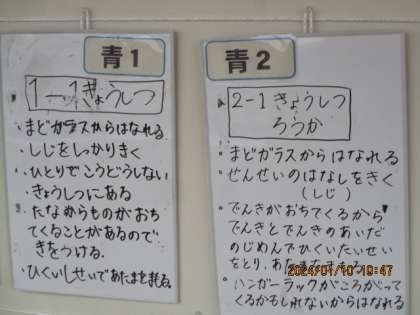 青1
1-1きょうしつ
・まどガラスからはなれる。
・しじをしっかりきく
・ひとりでこうどうしない
・きょうしつにある
たなからものがおち
てくることがあるので
きをつける。
・ひくいしせいであたまを守る。
青2
2-1きょうしつ
ろうか
・まどガラスからはなれる
・せんせいのはなしをきく
(しじ)
・でんきがおちてくるから
でんきとでんきのあいだ
のじめんでひくいたいせい
をとり、あたまをまもる
・ハンガーラックがころがって
くるかもしれないからはなれる
2024/01/10 10:47